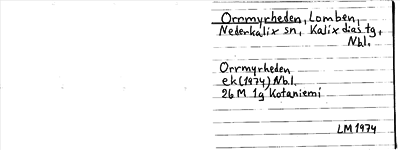 Orrmyrheden, Lomben,
Nederkalix sn, Kalix dias tg,
Nbl.
Orrmyrheden
ek (1974) Nbl.
26 M 1g Kotaniemi
LM 1974